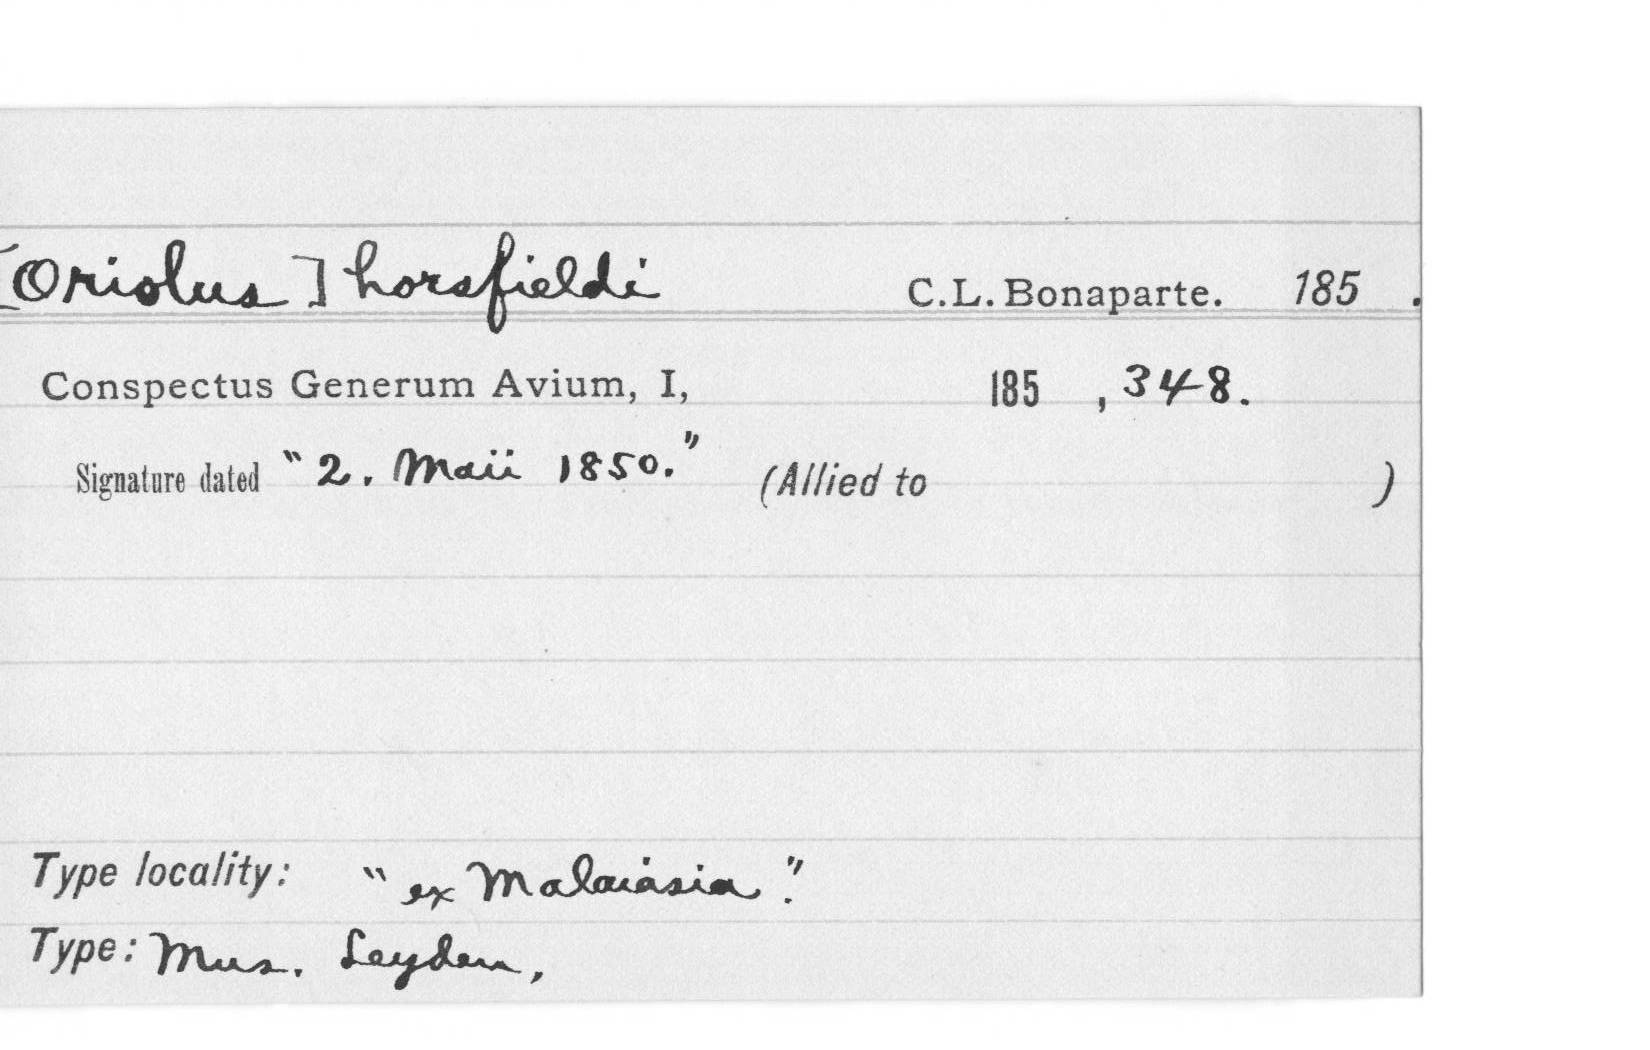 [Oriolus] horsfieldi C.L. Bonaparte. 185 .
Conspectus Generum Avium, I, 185 , 348.
Signature dated "2. Maii 1850." (Allied to )
Type locality: "ex Malaiasia".
Type: Mus. Leyden,